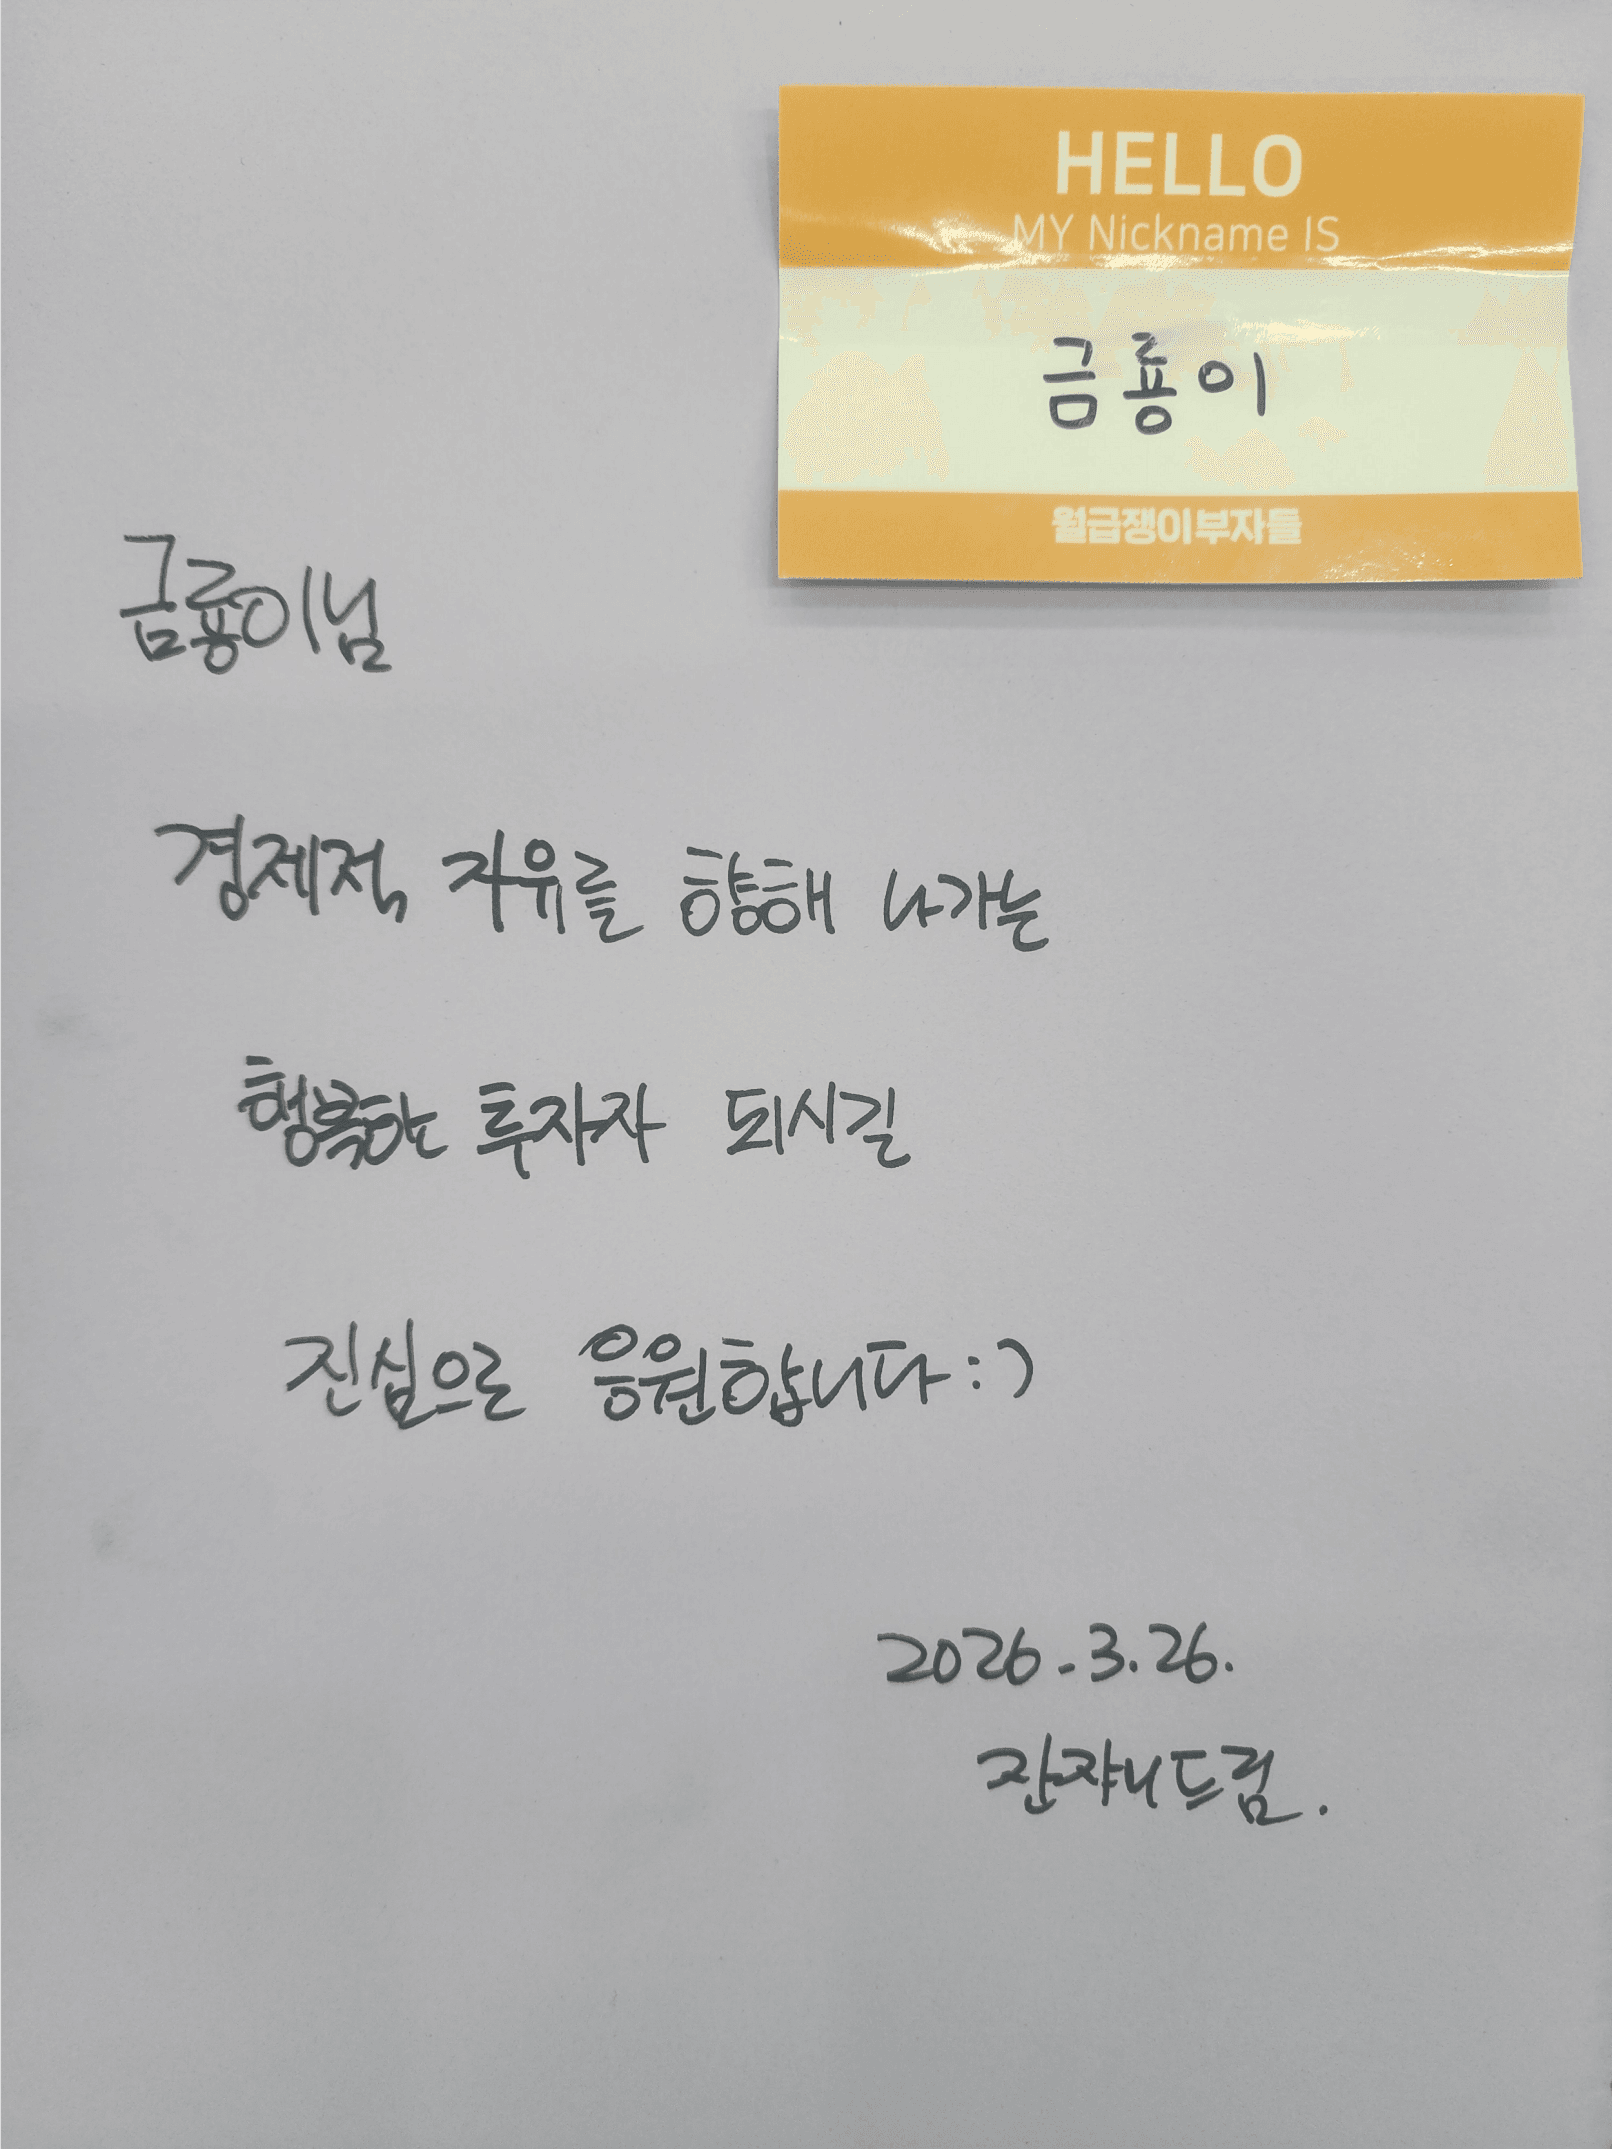 HELLO
MY Nickname IS
금룡이
월급쟁이부자들
금룡이님
경제적 자유를 향해 나가는
행복한 투자자 되시길
진심으로 응원합니다 :)
2026. 3. 26.
잔쟈니드림.